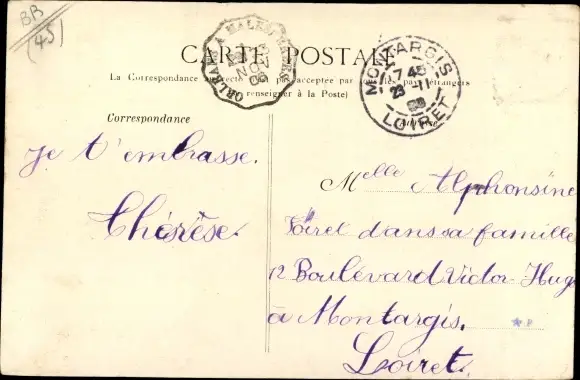 BB
(45)
CARTE POSTALE
ORLEANS A MALESHERBES
MONTARGIS
7 45
23 -11
LOIRET
La Correspondance au recto n'est pas acceptée par tous les pays étrangers
renseigner à la Poste)
Correspondance
Je t'embrasse.
Thérèse.
Melle Alphonsine
dans sa famille
12 Boulevard Victor Hugo
à Montargis.
Loiret.